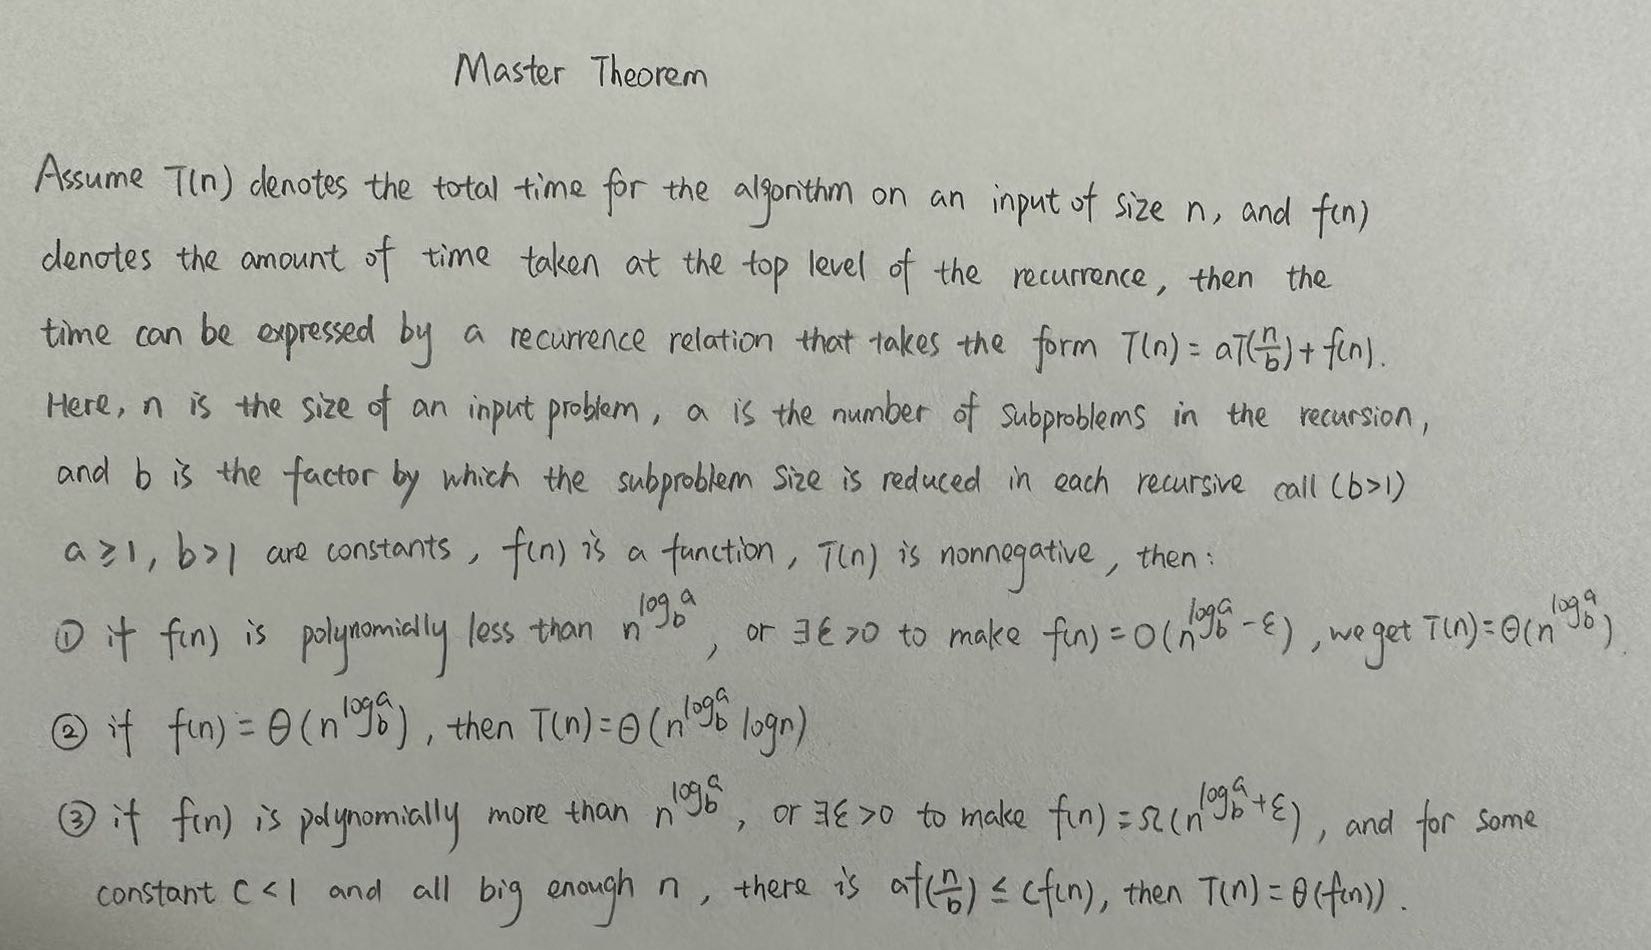 Master Theorem
Assume T(n) denotes the total time for the algorithm on an input of size n, and f(n)
denotes the amount of time taken at the top level of the recurrence, then the
time can be expressed by a recurrence relation that takes the form T(n) = aT(n/b) + f(n).
Here, n is the size of an input problem, a is the number of subproblems in the recursion,
and b is the factor by which the subproblem size is reduced in each recursive call (b>1)
a ≥ 1, b>1 are constants, f(n) is a function, T(n) is nonnegative, then:
① if f(n) is polynomially less than n^(log_b^a), or ∃ε>0 to make f(n) = O(n^(log_b^a - ε)), we get T(n) = Θ(n^(log_b^a)).
② if f(n) = Θ(n^(log_b^a)), then T(n) = Θ(n^(log_b^a) logn)
③ if f(n) is polynomially more than n^(log_b^a), or ∃ε>0 to make f(n) = Ω(n^(log_b^a + ε)), and for some
constant c<1 and all big enough n, there is af(n/b) ≤ cf(n), then T(n) = Θ(f(n)).